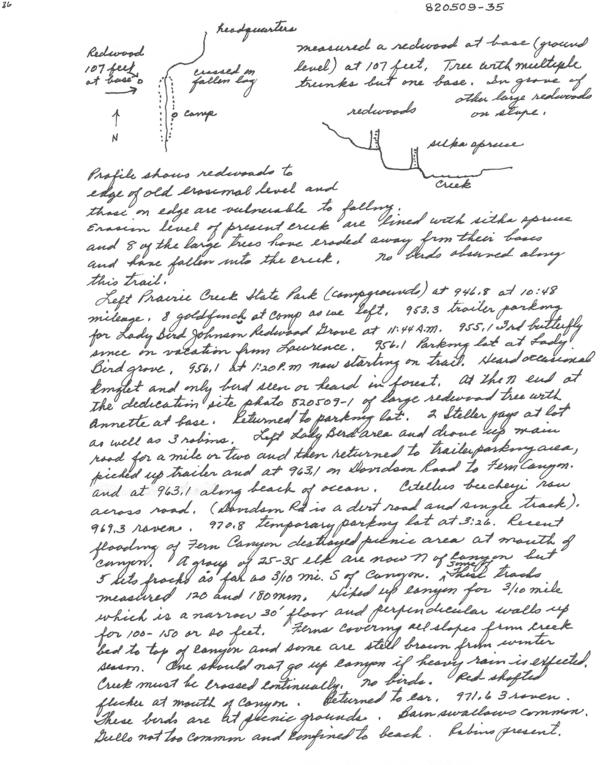 86
820509-35
headquarters
Redwood
107 feet
at base
crossed on
fallen log
camp
N
measured a redwood at base (ground
level) at 107 feet. Tree with multiple
trunks but one base. In grove of
other large redwoods
on slope.
redwoods
sitka spruce
Creek
Profile shows redwoods to
edge of old erosional level and
those on edge are vulnerable to falling.
Erosion level of present creek are lined with sitka spruce
and 8 of the large trees have eroded away from their bases
and have fallen into the creek. No birds observed along
this trail.
Left Prairie Creek State Park (campgrounds) at 946.8 at 10:48
mileage. 8 goldfinch at camp as we left. 953.3 trailer parking
for Lady Bird Johnson Redwood Grove at 11:44 A.M. 955.1 3rd butterfly
since on vacation from Lawrence. 956.1 Parking lot at Lady
Bird grove. 956.1 at 1:20 P.M now starting on trail. Heard occasional
kinglet and only bird seen or heard in forest. At the N end at
the dedication site photo 820509-1 of large redwood tree with
Annette at base. Returned to parking lot. 2 Steller jays at lot
as well as 3 robins. Left Lady Bird area and drove up main
road for a mile or two and then returned to trailer parking area,
picked up trailer and at 963.1 on Davidson Road to Fern Canyon.
and at 963.1 along beach of ocean. Citellus beecheyi ran
across road. (Davidson Rd is a dirt road and single track).
969.3 raven. 970.8 temporary parking lot at 3:26. Recent
flooding of Fern Canyon destroyed picnic area at mouth of
canyon. A group of 25-35 elk are now N of canyon but
5 sets tracks as far as 3/10 mi. S of Canyon. Some of These tracks
measured 120 and 180 mm. Hiked up canyon for 3/10 mile
which is a narrow 30' floor and perpendicular walls up
for 100-150 or so feet. Ferns covering all slopes from creek
bed to top of canyon and some are still brown from winter
season. One should not go up canyon if heavy rain is expected.
Creek must be crossed continually. No birds. Red shafted
flicker at mouth of canyon. Returned to car. 971.6 3 raven.
These birds are at picnic grounds. Barn swallows common.
Gulls not too common and confined to beach. Robins present.